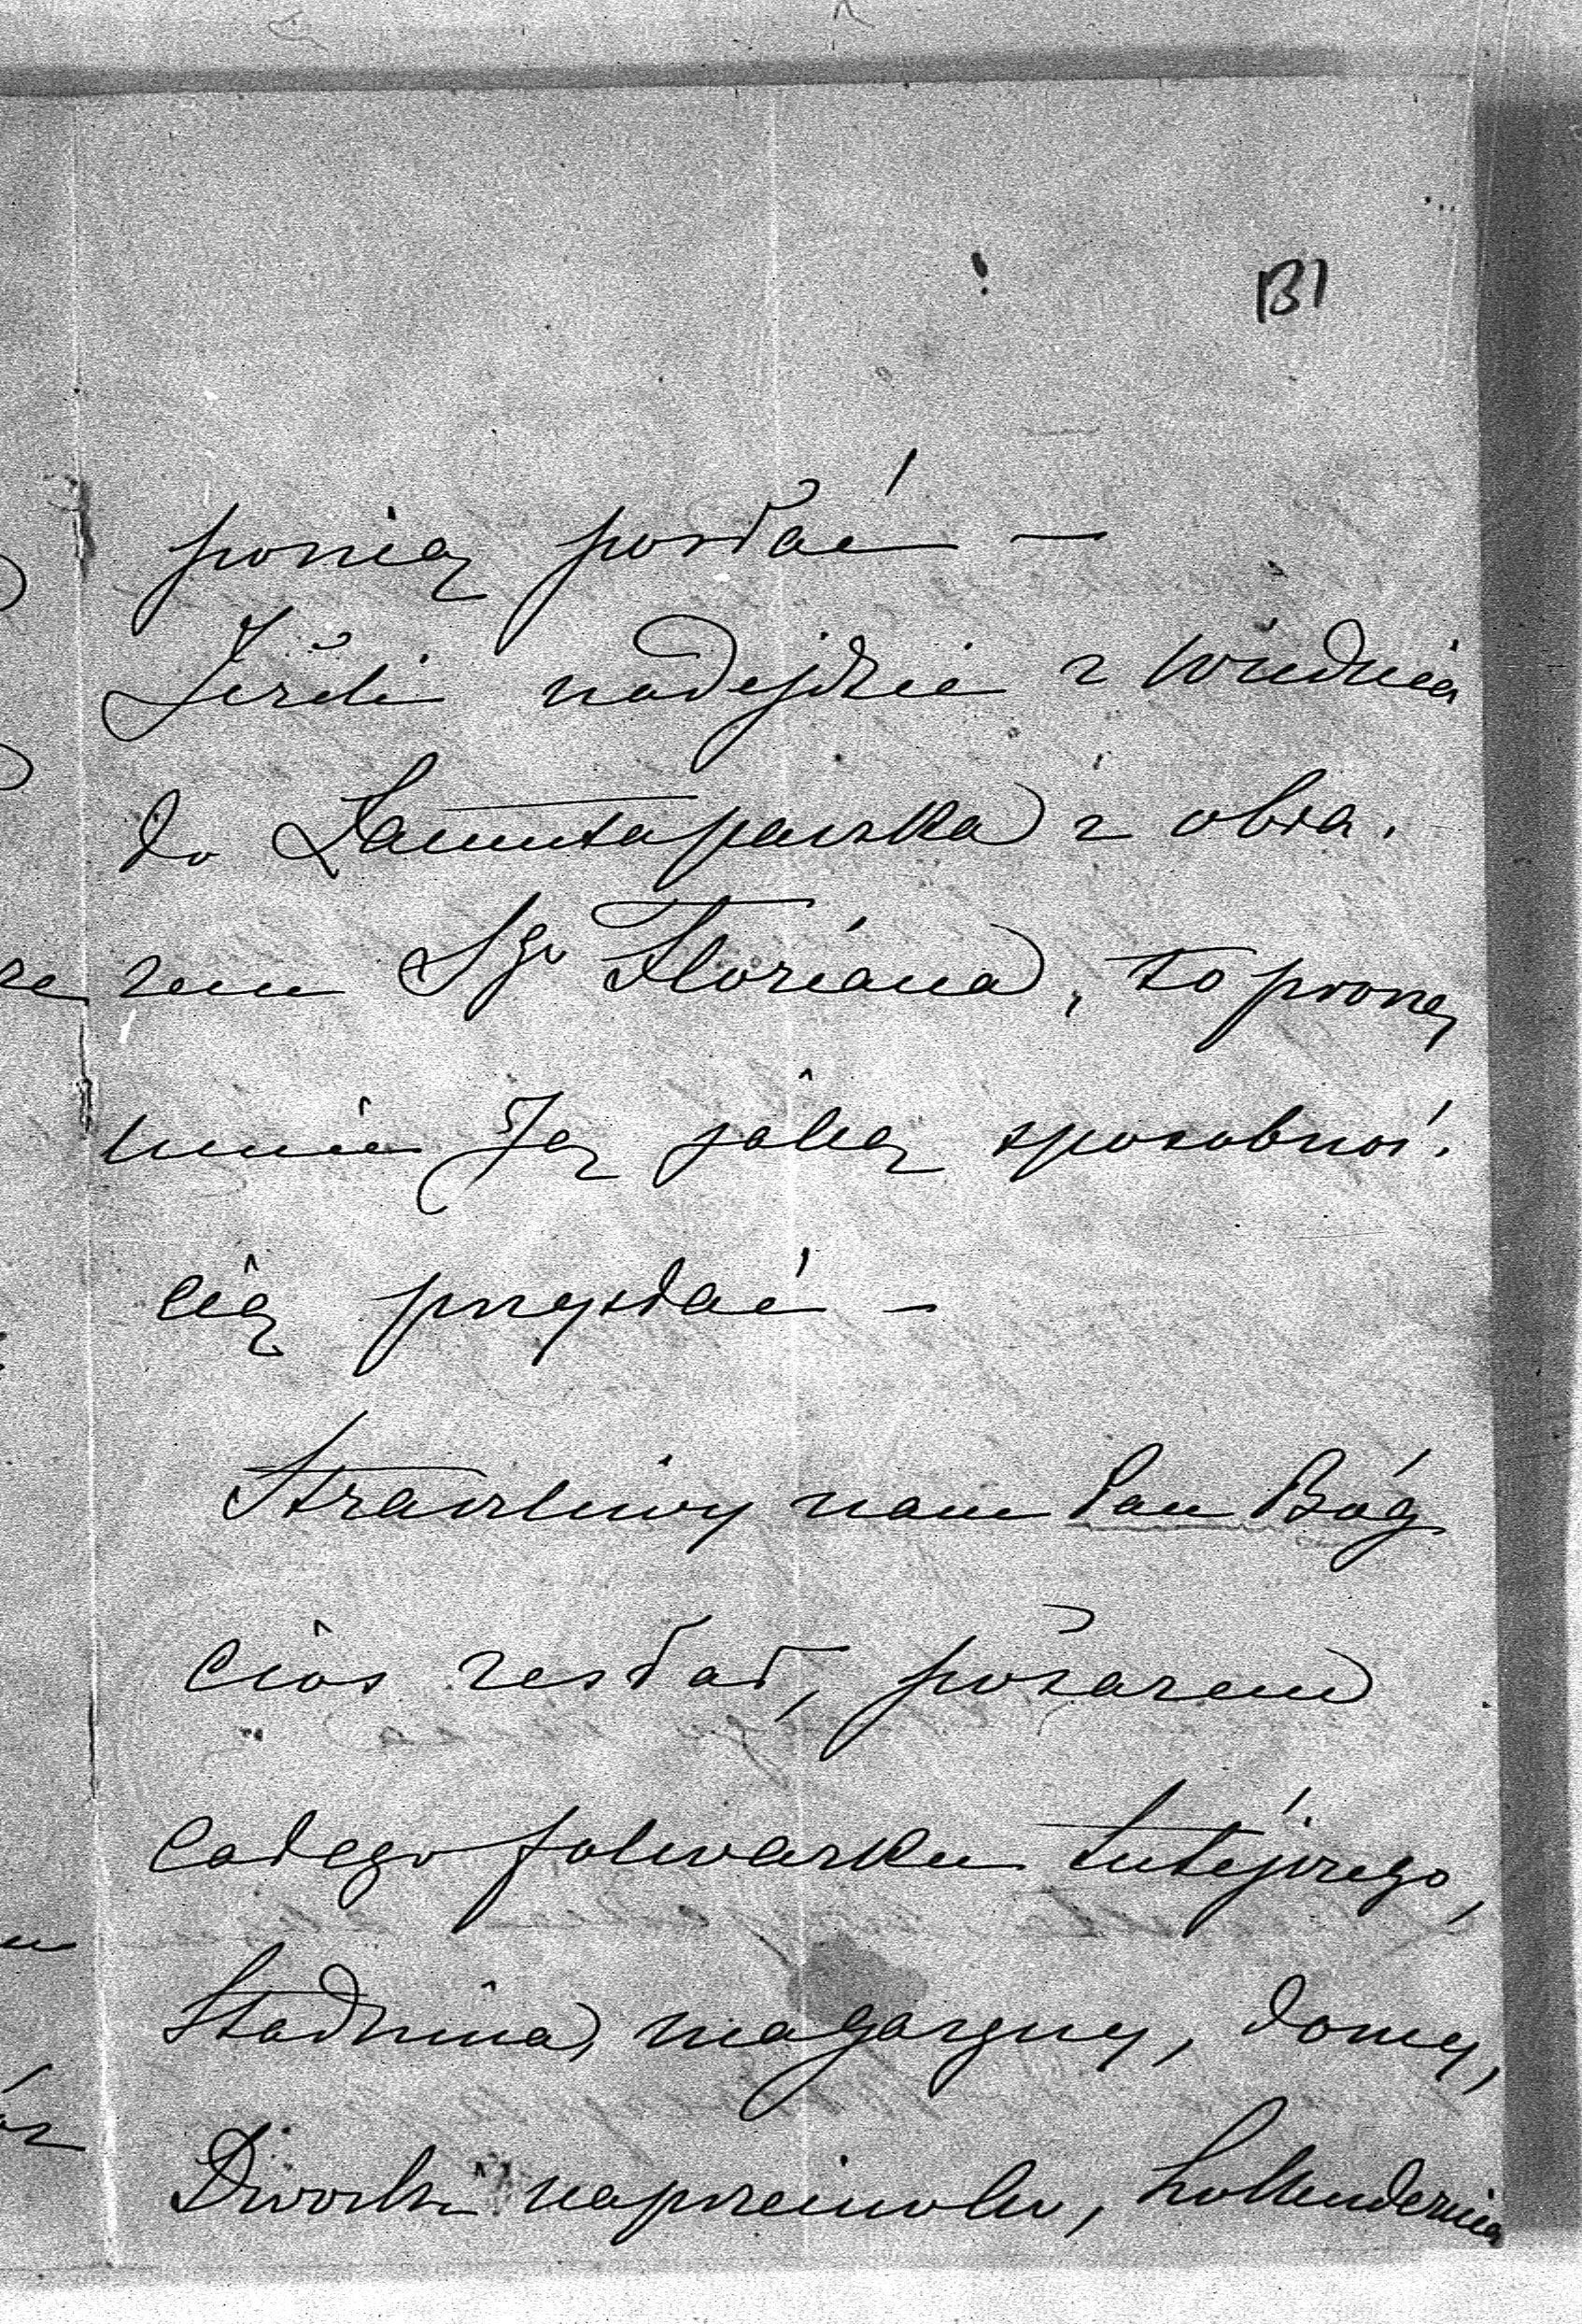 131
ponią posłać —
Jeżeli nadejdzie z Wiednia
do Łańcuta paczka z obra.
zem Sgo Floriana, to proszę
mnie Ją jaką sposobnoś.
cią przysłać —
Straszliwy nam Pan Bóg
cios zesłał, pożarem
całego folwarku tutéjszego,
Stadnina, magazyny, domy,
Dworki naprzeciwko, hollendernia